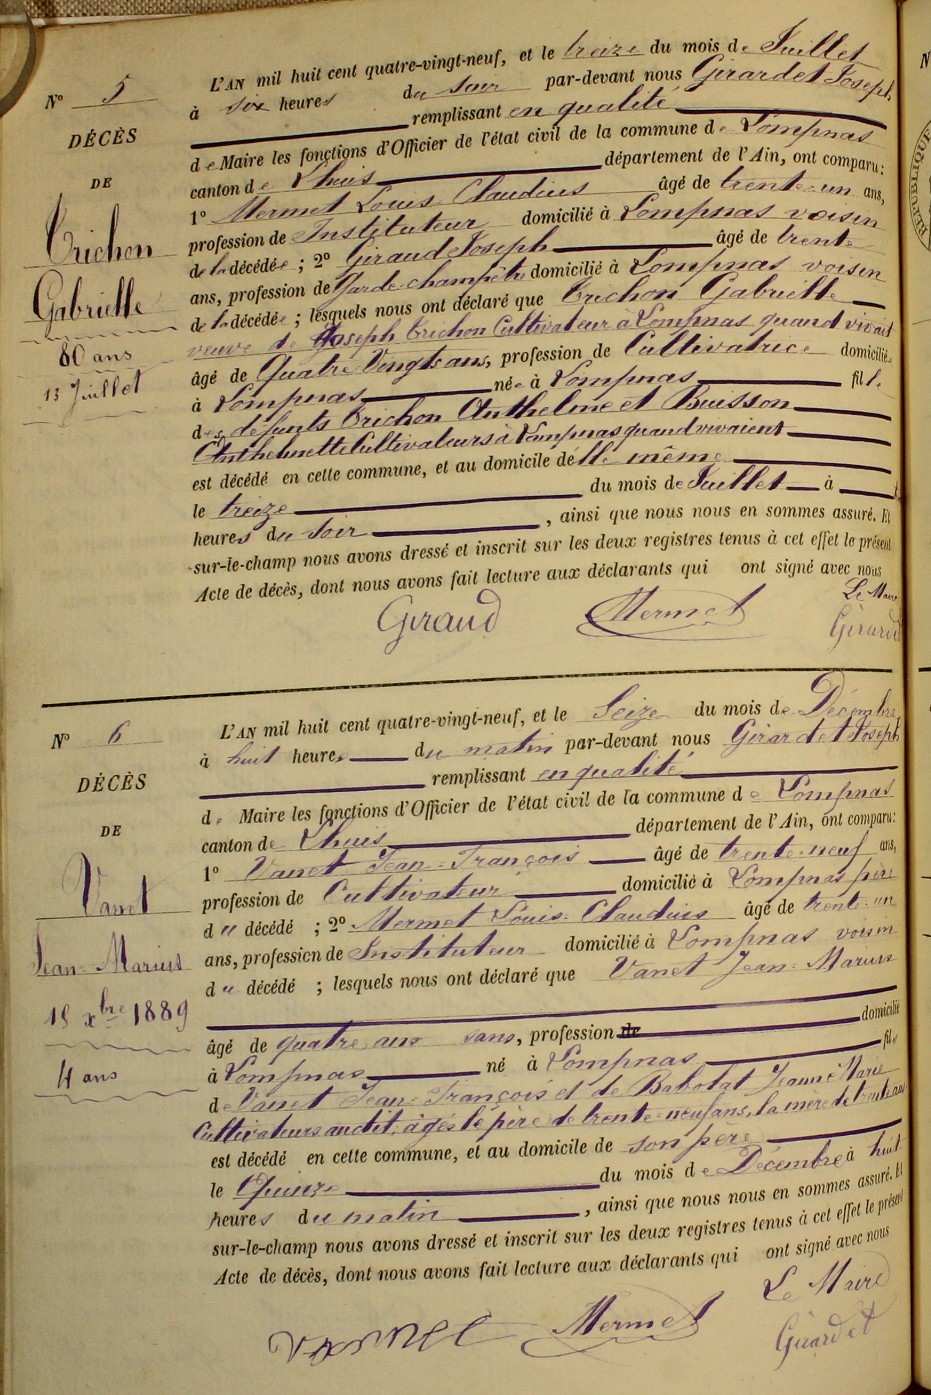 N° 5
DÉCÈS
DE
Trichon
Gabrielle
80 ans
13 Juillet
L'AN mil huit cent quatre-vingt-neuf, et le treize du mois de Juillet
à six heures du soir par-devant nous Girardet Joseph
remplissant en qualité
de Maire les fonctions d'Officier de l'état civil de la commune de Lompnas
canton de Lhuis département de l'Ain, ont comparu:
1° Mermet Louis-Claudius âgé de trente-un ans,
profession de Instituteur domicilié à Lompnas voisin
de la décédée ; 2° Giraud Joseph âgé de trente
ans, profession de Garde-champêtre domicilié à Lompnas voisin
de la décédée ; lesquels nous ont déclaré que Trichon Gabrielle
veuve de Joseph Trichon Cultivateur à Lompnas quand vivait
âgé de Quatre Vingts ans, profession de Cultivatrice domiciliée
à Lompnas née à Lompnas fille
des défunts Trichon Anthelme et Buisson
Anthelmette Cultivateurs à Lompnas quand vivaient
est décédé en cette commune, et au domicile d'elle même
le treize du mois de Juillet à
heures du soir , ainsi que nous nous en sommes assuré. Et
sur-le-champ nous avons dressé et inscrit sur les deux registres tenus à cet effet le présent
Acte de décès, dont nous avons fait lecture aux déclarants qui ont signé avec nous
Le Maire
Giraud Mermet Girardet
N° 6
DÉCÈS
DE
Vanet
Jean-Marius
15 xbre 1889
4 ans
L'AN mil huit cent quatre-vingt-neuf, et le Seize du mois de Décembre
à huit heures du matin par-devant nous Girardet Joseph
remplissant en qualité
de Maire les fonctions d'Officier de l'état civil de la commune de Lompnas
canton de Lhuis département de l'Ain, ont comparu:
1° Vanet Jean-François âgé de trente-neuf ans,
profession de Cultivateur domicilié à Lompnas père
du décédé ; 2° Mermet Louis-Claudius âgé de trente-un
ans, profession de Instituteur domicilié à Lompnas voisin
du décédé ; lesquels nous ont déclaré que Vanet Jean-Marius
âgé de quatre ans sans, profession de domicilié
à Lompnas né à Lompnas fils
de Vanet Jean-François et de Babolat Jeanne Marie
Cultivateurs audit, âgés le père de trente-neuf ans, la mère de trente ans
est décédé en cette commune, et au domicile de son père
le Quinze du mois de Décembre à huit
heures du matin , ainsi que nous nous en sommes assuré. Et
sur-le-champ nous avons dressé et inscrit sur les deux registres tenus à cet effet le présent
Acte de décès, dont nous avons fait lecture aux déclarants qui ont signé avec nous
Le Maire
Mermet Girardet